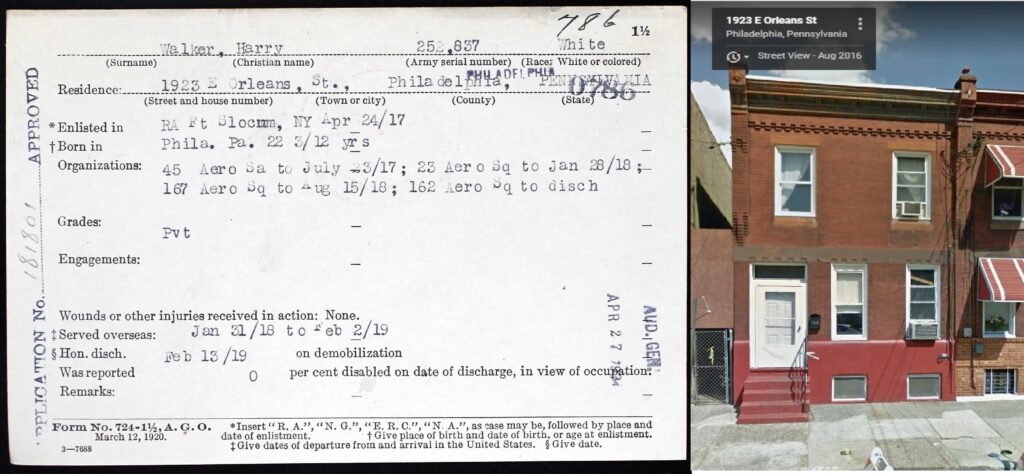 786
1½
Walker, Harry 252,837 White
(Surname) (Christian name) (Army serial number) (Race: White or colored)
Residence: 1923 E Orleans, St., Philadelphia, PHILADELPHIA PENNSYLVANIA
0786
(Street and house number) (Town or city) (County) (State)
*Enlisted in RA Ft Slocum, NY Apr 24/17
†Born in Phila. Pa. 22 3/12 yrs
Organizations: 45 Aero Sa to July 23/17; 23 Aero Sq to Jan 28/18;
167 Aero Sq to Aug 15/18; 162 Aero Sq to disch
Grades:
Pvt
Engagements:
Wounds or other injuries received in action: None.
‡Served overseas: Jan 31/18 to Feb 2/19
§Hon. disch. Feb 13/19 on demobilization
Was reported 0 per cent disabled on date of discharge, in view of occupation.
Remarks:
Form No. 724-1½, A. G. O.
March 12, 1920.
3—7688
*Insert "R. A.", "N. G.", "E. R. C.", "N. A.", as case may be, followed by place and
date of enlistment. †Give place of birth and date of birth, or age at enlistment.
‡Give dates of departure from and arrival in the United States. §Give date.
APPLICATION No. 181801 APPROVED
APR 27
AUD. GEN.
1923 E Orleans St
Philadelphia, Pennsylvania
Street View - Aug 2016